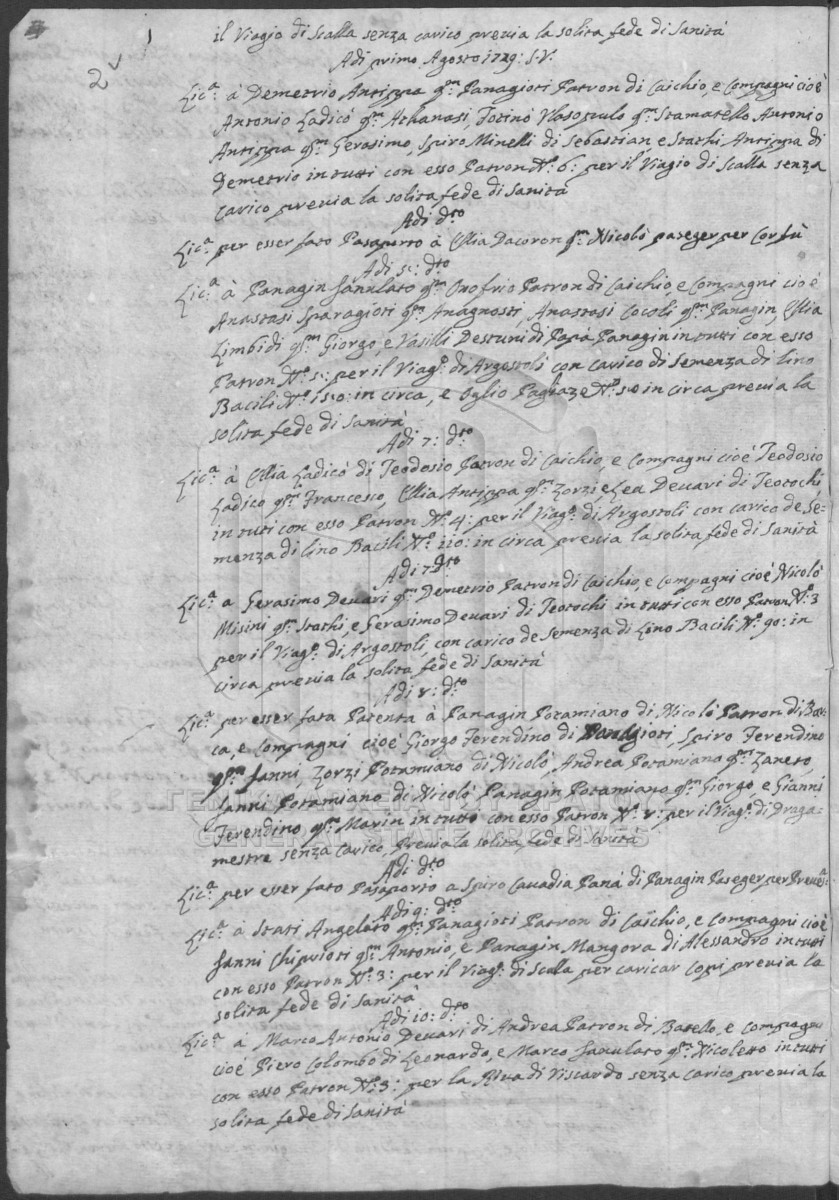 2v
il Viagio di Scalla senza carico previa la solita fede di Sanità
Adi primo Agosto 1729: S.V.
Lic.ª à Demetrio Antippa q.m Panagioti Patron di Caichio, e Compagni cioè
Antonio Ladicò q.m Athanasi, Fotinò Vlasopulo q.m Stamatello Antonio
Antippa q.m Gerosimo, Spiro Minelli di Sebastian, e Stathi Antippa di
Demetrio in tutti con esso Patron N.º 6: per il Viagio di Scalla senza
carico previa la solita fede di Sanità
Adi d.to
Lic.ª per esser fato Pasaporto à Ellia Dacoron q.m Nicolò paseger per Corfù
Adi 5: d.to
Lic.ª à Panagin Iannulato q.m Onofrio Patron di Caichio, e Compagni cioè
Anastasi Sparagioti q.m Anagnosti, Anastasi Cocoli q.m Panagin, Ellia
Limbidi q.m Giorgo, e Vasilli Destuni di Papà Panagin in tutti con esso
Patron N.º 5: per il Viag.º di Argostoli con carico di Semenza di lino
Bacili N.º 150: in circa, e Oglio Pagliaze N.º 50 in circa previa la
solita fede di Sanità
Adi 7: d.to
Lic.ª à Ellia Ladicò di Teodosio Patron di Caichio, e Compagni cioè Teodosio
Ladico q.m Francesco, Ellia Antippa q.m Zorzi e Lea Devari di Teotochi
in tuti con esso Patron N.º 4: per il Viag.º di Argostoli con carico de Se=
menza di lino Bacili N.º 110: in circa previa la solita fede di Sanità
Adi 7 d.to
Lic.ª a Gerasimo Devari q.m Demetrio Patron di Caichio, e Compagni cioè Nicolò
Misini q.m Stathi, e Gerasimo Devari di Teotochi in tuti con esso Patron N.º 3
per il Viag.º di Argostoli, con carico de Semenza di Lino Bacili N.º 90: in
circa previa la solita fede di Sanità
Adi 8: d.to
Lic.ª per esser fata Patenta à Panagin Potamiano di Nicolò Patron di Bar=
ca, e Compagni cioè Giorgo Ferendino di Panagioti, Spiro Ferendino
q.m Ianni, Zorzi Potamiano di Nicolò, Andrea Potamiano q.m Zaneto,
Ianni Potamiano di Nicolò Panagin Potamiano q.m Giorgo, e Gianni
Ferendino q.m Marin in tutto con esso Patron N.º 8: per il Viag.º di Draga=
mestre senza carico, previa la solita fede di Sanità
Adi d.to
Lic.ª per esser fato Pasaporto a Spiro Cavadia Panà di Panagin Paseger per Preves:
Adi 9: d.to
Lic.ª à Stati Angelato q.m Panagioti Patron di Caichio, e Compagni cioè
Ianni Chipuioti q.m Antonio, e Panagin Mangora di Alessandro in tuti
con esso Patron N.º 3: per il Viag.º di Scalla per caricar copi previa la
solita fede di Sanità
Adi 10: d.to
Lic.ª à Marco Antonio Devari di Andrea Patron di Batello, e Compagni
cioè Piero Colombo di Leonardo, e Marco Ianulato q.m Nicoletto in tutti
con esso Patron N.º 3: per la Riva di Viscardo senza carico previa la
solita fede di Sanità
ΓΕΝΙΚΑ ΑΡΧΕΙΑ ΤΟΥ ΚΡΑΤΟΥΣ
GENERAL STATE ARCHIVES